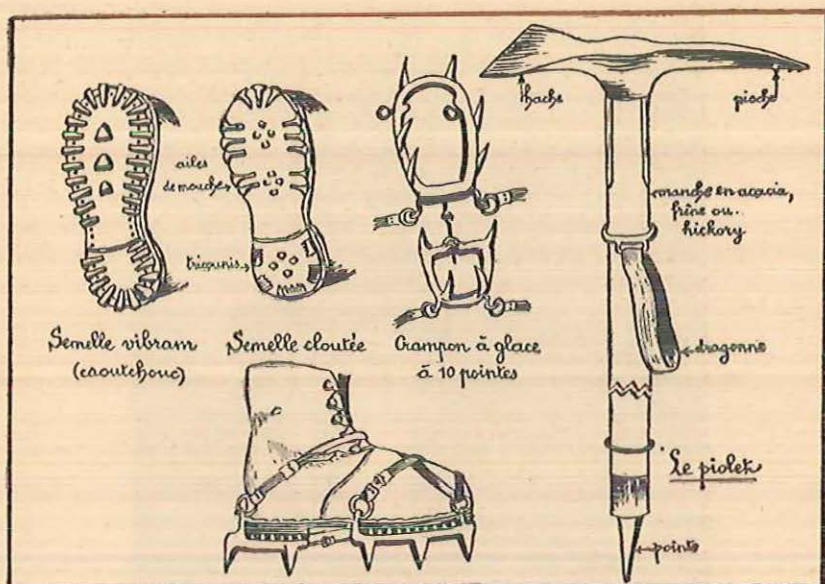 hache
pioche
ailes
de mouche
manche en acacia,
frêne ou
hickory
tricounis
Semelle vibram
(caoutchouc)
Semelle cloutée
Crampon à glace
à 10 pointes
dragonne
Le piolet
pointe